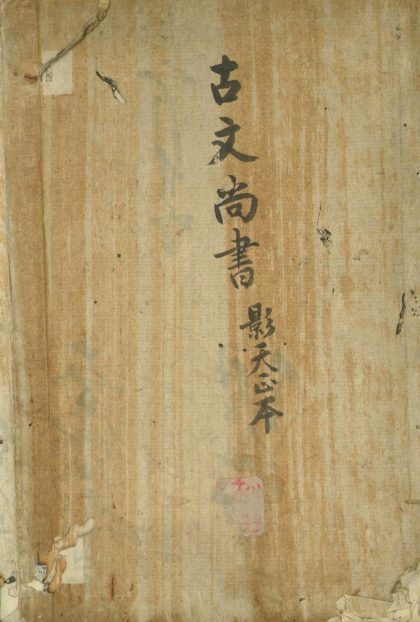 古文尚書
影天正本